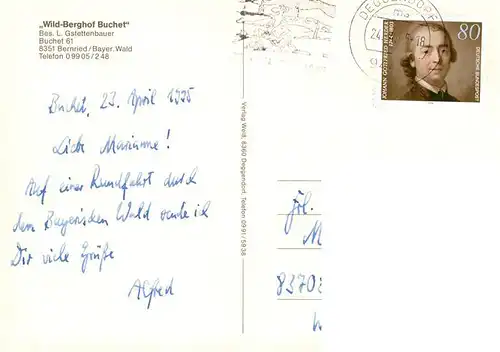 „Wild-Berghof Buchet"
Bes. L. Gstettenbauer
Buchet 61
8351 Bernried / Bayer. Wald
Telefon 0 99 05 / 2 48
Buchet, 23. April 1995
Liebe Marianne!
Auf einer Rundfahrt durch
den Bayerischen Wald sende ich
Dir viele Grüße
Alfred
Verlag Weiß, 8360 Deggendorf, Telefon 09 91 / 59 38
DEGGENDORF
24.
80
JOHANN GOTTFRIED HERDER
DEUTSCHE BUNDESPOST
Frl.
M
8370